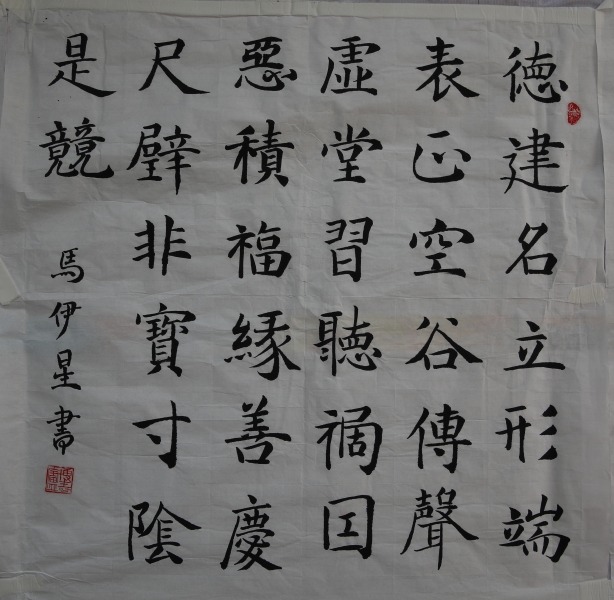 德建名立形端
表正空谷傳聲
虛堂習聽禍因
惡積福緣善慶
尺璧非寶寸陰
是競
馬伊星書